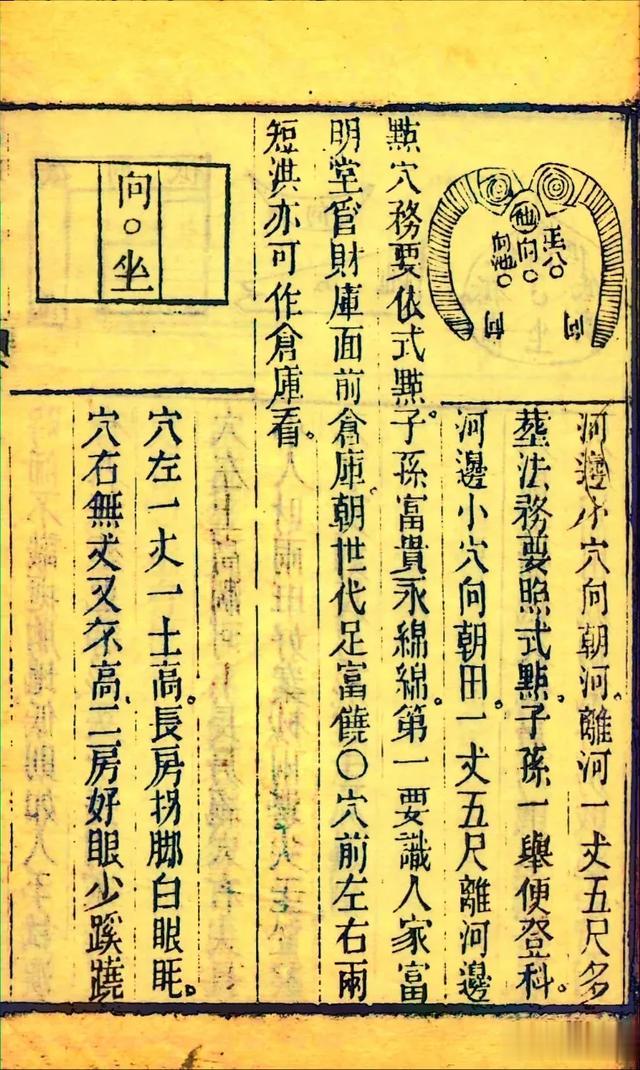 向○
河邊小穴向朝河。離河一丈五尺多
塟法務要照式點。子孫一舉便登科。
河邊小穴向朝田。一丈五尺離河邊
點穴務要依式點。子孫富貴永綿綿。第一要識人家富
明堂管財庫面前倉庫朝世代足富饒〇穴前左右兩
短洪亦可作倉庫看。
向○坐
穴左一丈一土高。長房拐脚白眼眊。
穴右無丈又不高。二房好眼少蹊蹺